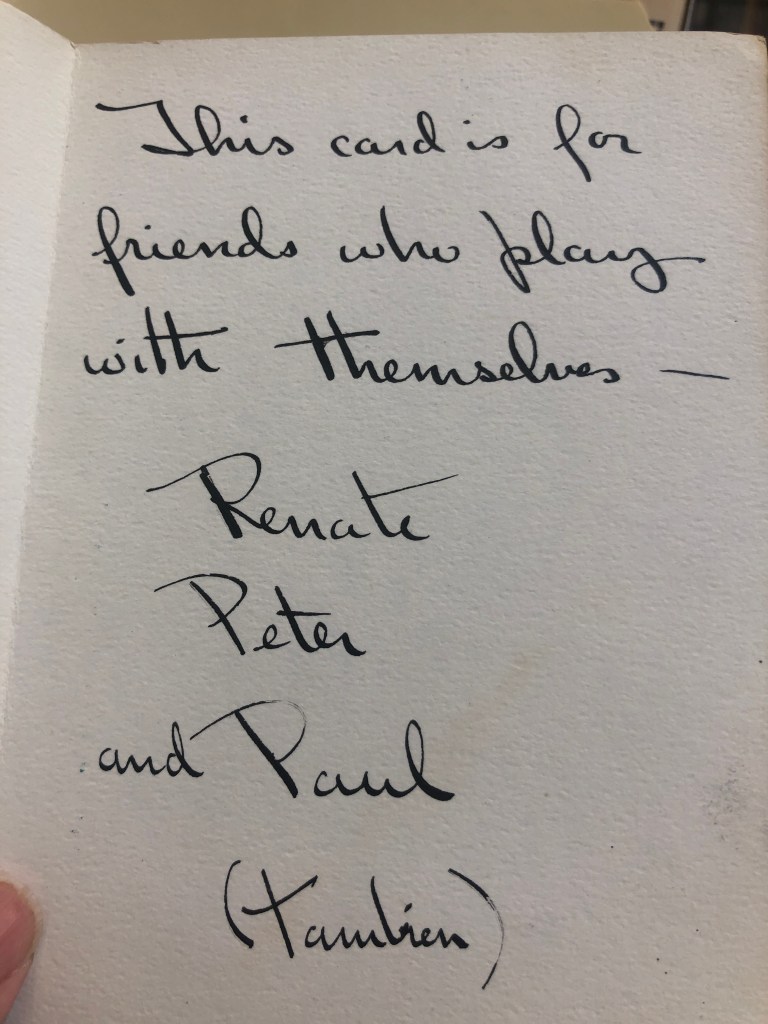 This card is for
friends who play
with themselves —
Renate
Peter
and Paul
(tambien)